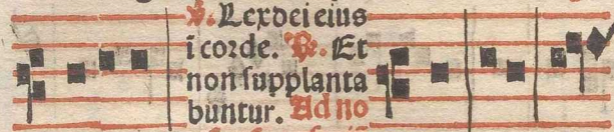 ℣. Lex dei eius
ī corde. ℟. Et
non supplanta
buntur. Ad no